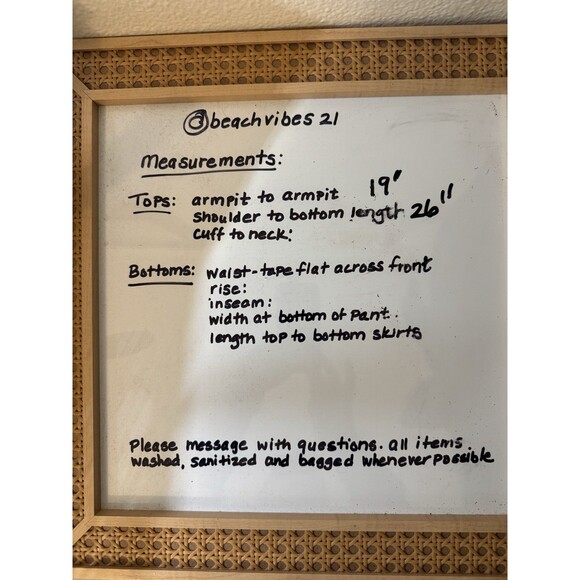 @beachvibes 21
Measurements:
Tops: armpit to armpit 19"
shoulder to bottom length 26"
cuff to neck:
Bottoms: waist-tape flat across front
rise:
inseam:
width at bottom of pant.
length top to bottom skirts
Please message with questions. all items
washed, sanitized and bagged whenever possible